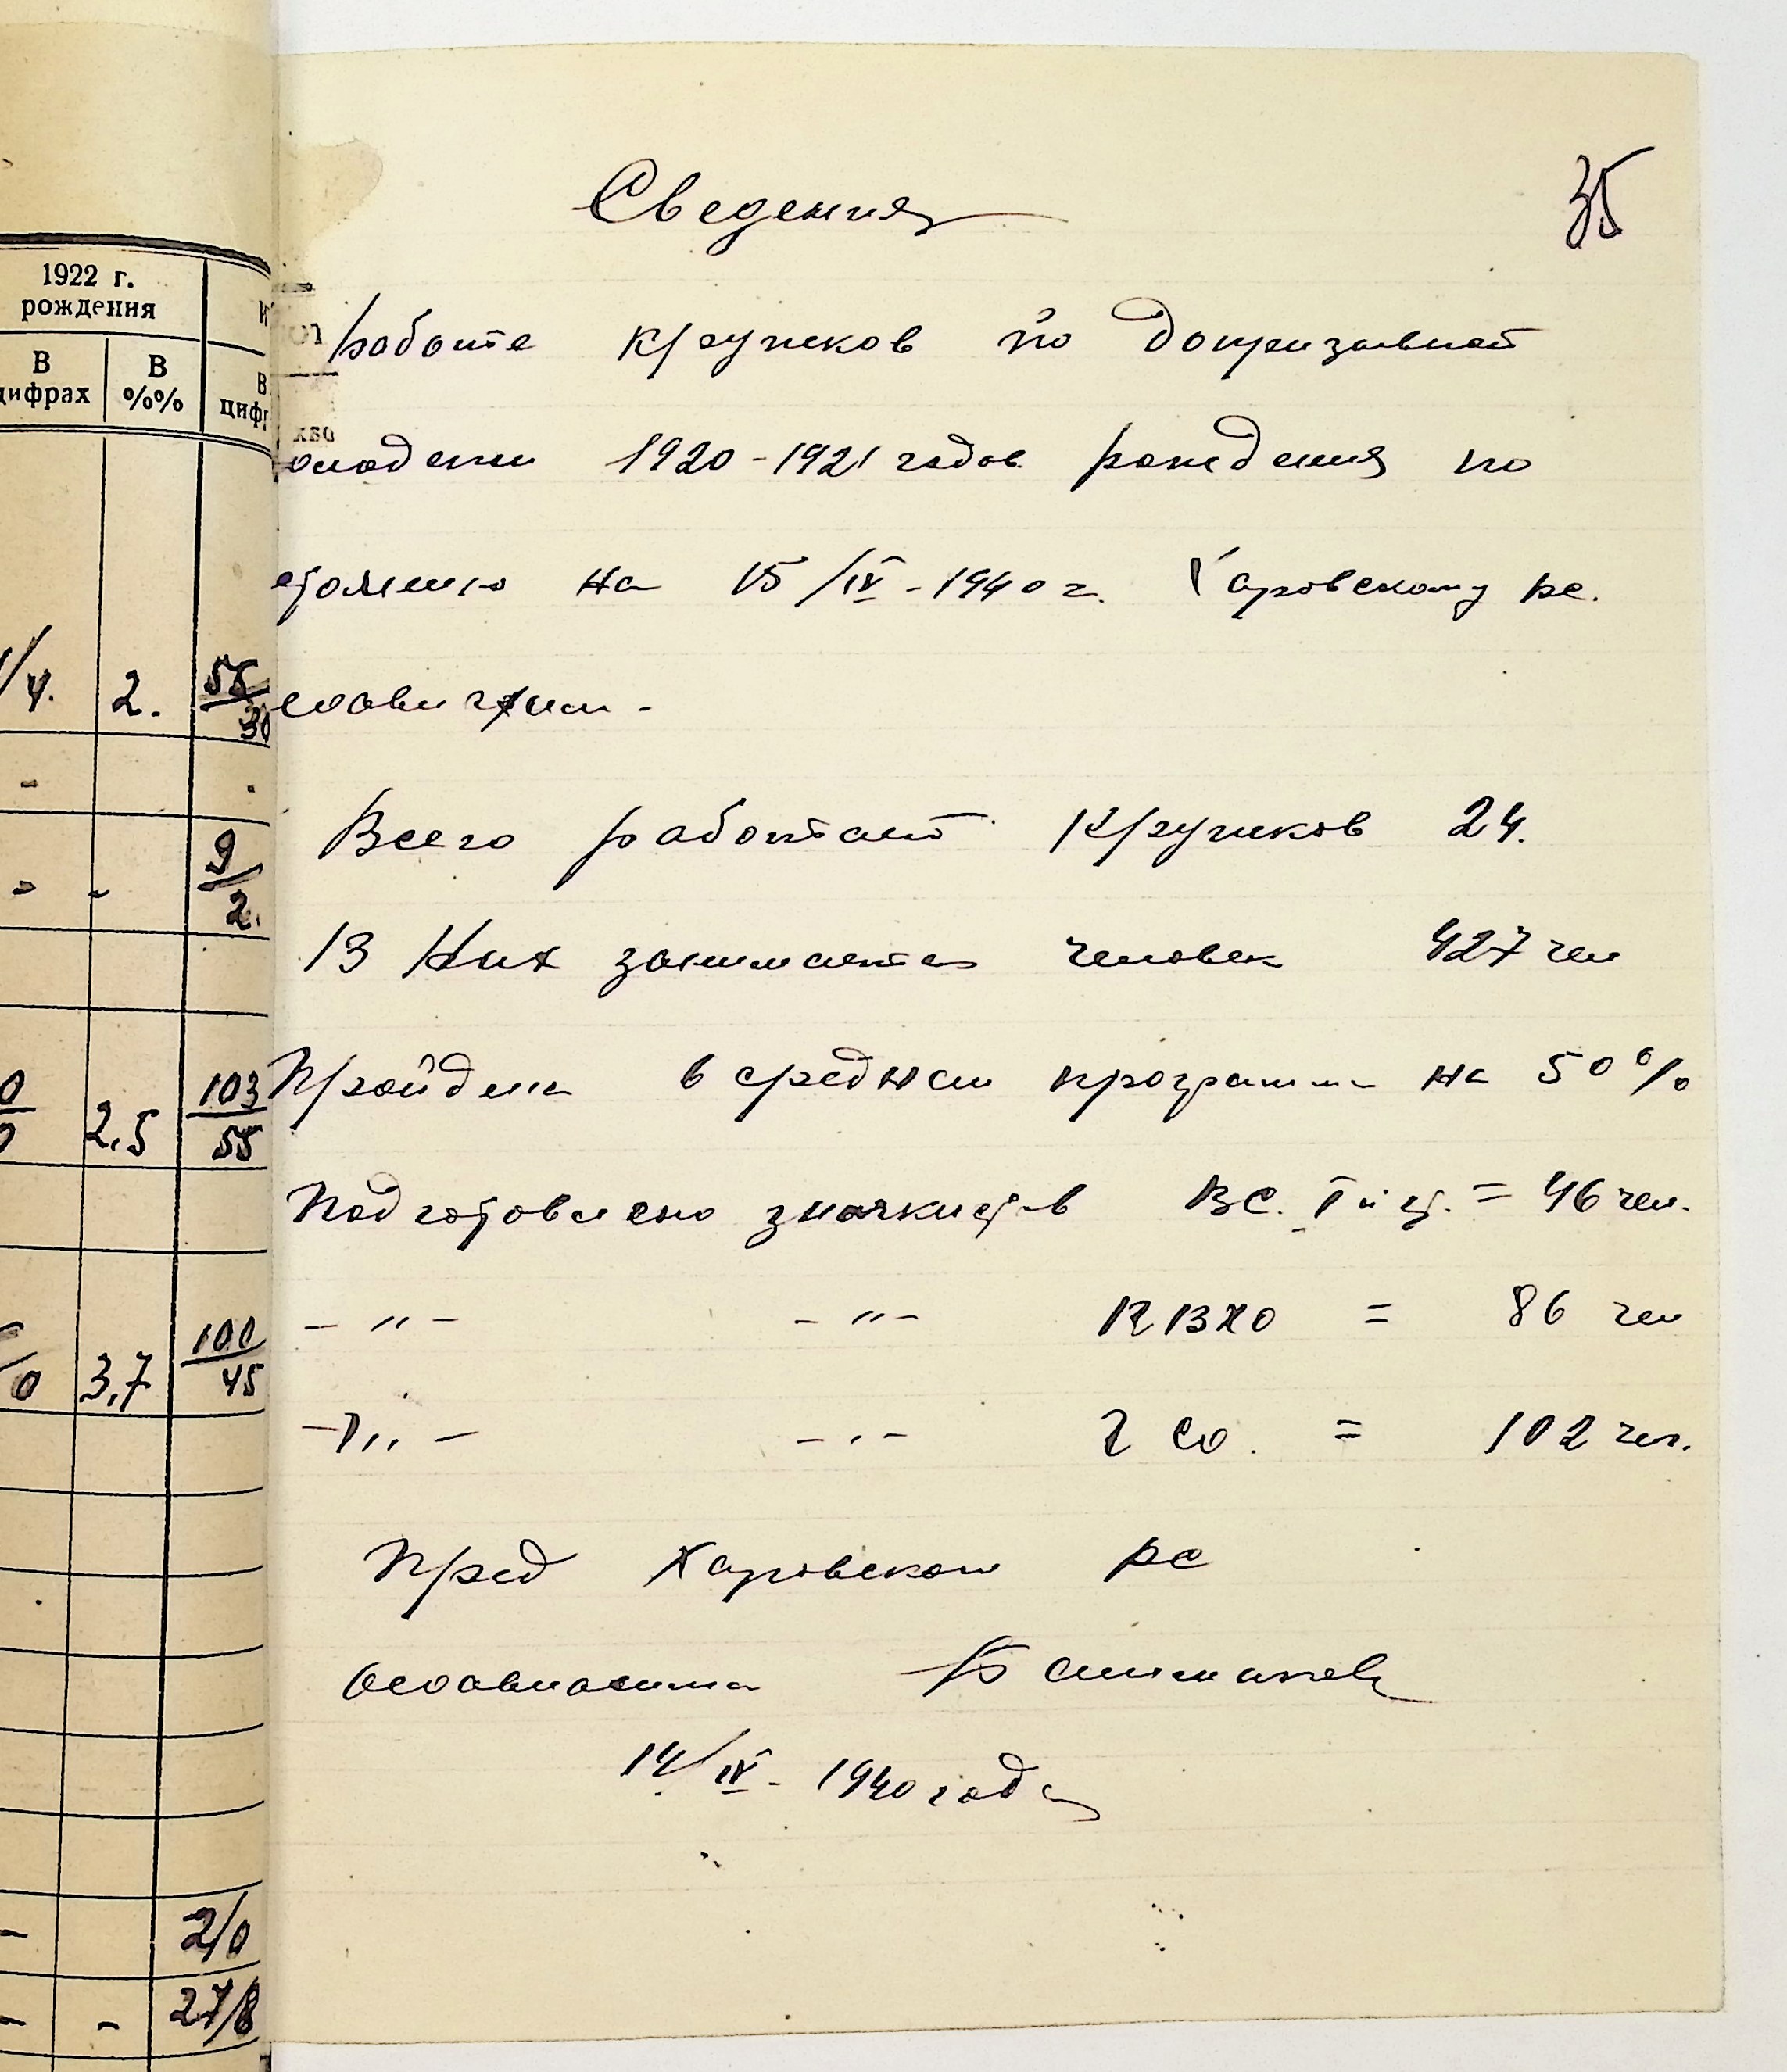 35
Сведения
работе кружков по допризывной
молодежи 1920-1921 годов рождения по
стоянию на 15/IV-1940 г. Харовскому рс.
соавиахим-
Всего работает кружков 24.
Из них занимается человек 427 чел
Пройдена в среднем программа на 50%
Подготовлено значкистов ВС. I й ст. = 46 чел.
- " - - " - ПВХО = 86 чел
- " - - " - ГСО. = 102 чел.
Пред Харовского рс
осоавиахима
14/IV-1940 года
1922 г.
рождения
В
цифрах
В
%%
В
цифр
4. 2. 55/30
- -
- - 9/2.
2,5 103/55
0 3,7 100/45
- 2/0
- - 27/8